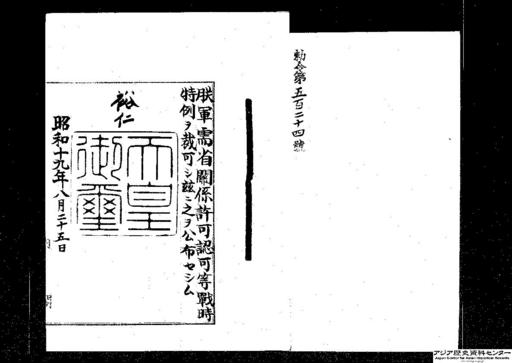 勅令第五百二十四號
朕軍需省關係許可認可等戰時
特例ヲ裁可シ茲ニ之ヲ公布セシム
裕仁
天皇
御璽
昭和十九年八月二十五日
アジア歴史資料センター
Japan Center for Asian Historical Records